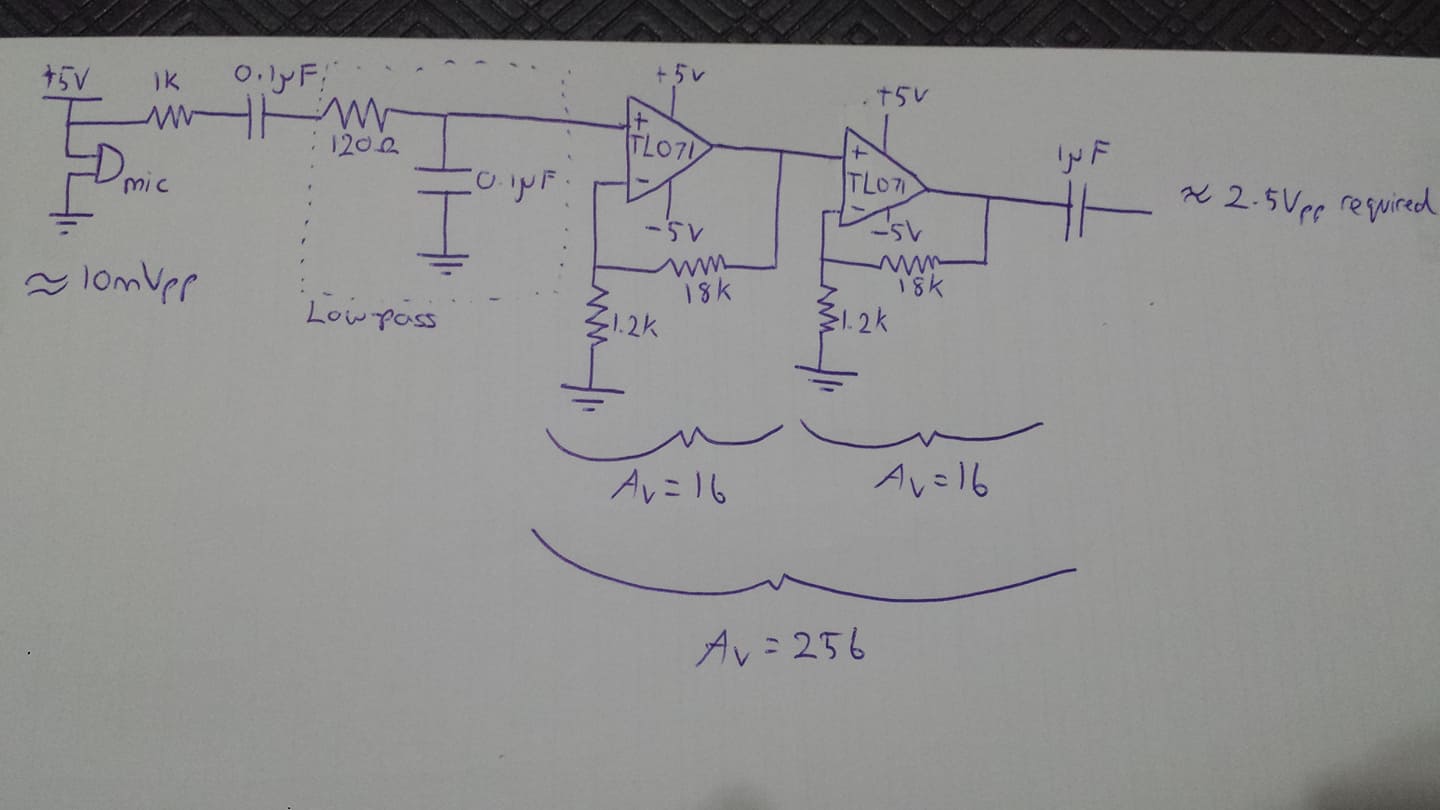 +5V
1K
0.1µF
120Ω
0.1µF
mic
≈ 10mVpp
Low pass
+5V
+
TL071
-
-5V
18K
1.2K
+5V
+
TL071
-
-5V
18K
1.2K
1µF
≈ 2.5Vpp required
Av = 16
Av = 16
Av = 256